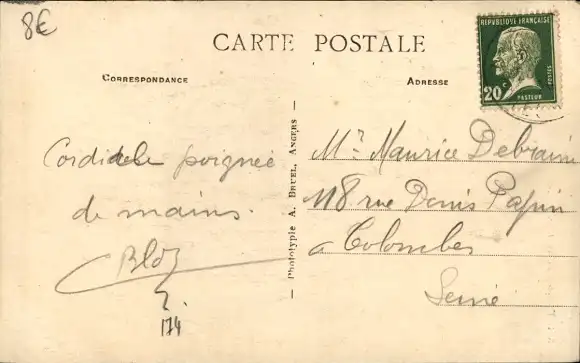 8€
CARTE POSTALE
CORRESPONDANCE
ADRESSE
REPUBLIQUE FRANÇAISE
20c
PASTEUR
POSTES
Cordiale poignée
de mains.
174
Phototypie A. BRUEL, ANGERS
Mr Maurice Debraine
118 rue Denis Papin
a Colombes
Seine